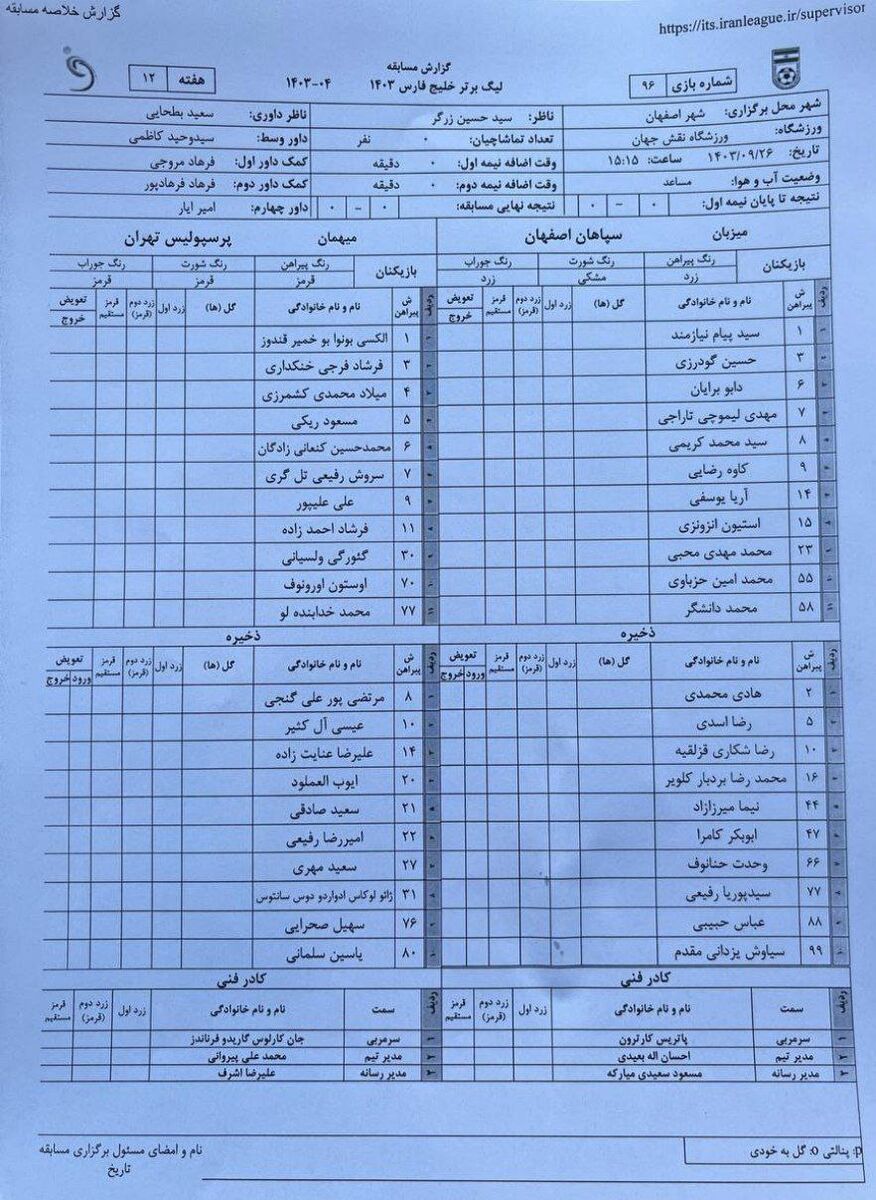 گزارش خلاصه مسابقه
https://its.iranleague.ir/supervisor
گزارش مسابقه
لیگ برتر خلیج فارس ۱۴۰۳ ۱۴۰۳-۰۴
شماره بازی ۹۶
هفته ۱۲
شهر محل برگزاری: شهر اصفهان ناظر: سید حسین زرگر ناظر داوری: سعید بطحایی
ورزشگاه: ورزشگاه نقش جهان تعداد تماشاچیان: ۰ نفر داور وسط: سیدوحید کاظمی
تاریخ: ۱۴۰۳/۰۹/۲۶ ساعت: ۱۵:۱۵ وقت اضافه نیمه اول: ۰ دقیقه کمک داور اول: فرهاد مروجی
وضعیت آب و هوا: مساعد وقت اضافه نیمه دوم: ۰ دقیقه کمک داور دوم: فرهاد فرهادپور
نتیجه تا پایان نیمه اول: ۰ - ۰ نتیجه نهایی مسابقه: ۰ - ۰ داور چهارم: امیر ایار
میزبان سپاهان اصفهان
بازیکنان رنگ پیراهن رنگ شورت رنگ جوراب
زرد مشکی زرد
ردیف ش پیراهن نام و نام خانوادگی گل (ها) زرد اول زرد دوم (قرمز) قرمز مستقیم تعویض خروج
۱ ۱ سید پیام نیازمند
۲ ۳ حسین گودرزی
۳ ۶ دابو برایان
۴ ۷ مهدی لیموچی تاراجی
۵ ۸ سید محمد کریمی
۶ ۹ کاوه رضایی
۷ ۱۴ آریا یوسفی
۸ ۱۵ استیون انزونزی
۹ ۲۳ محمد مهدی محبی
۱۰ ۵۵ محمد امین حزباوی
۱۱ ۵۸ محمد دانشگر
ذخیره
ردیف ش پیراهن نام و نام خانوادگی گل (ها) زرد اول زرد دوم (قرمز) قرمز مستقیم تعویض ورود خروج
۱ ۲ هادی محمدی
۲ ۵ رضا اسدی
۳ ۱۰ رضا شکاری قزلقیه
۴ ۱۶ محمد رضا بردبار کلویر
۵ ۴۴ نیما میرزازاد
۶ ۴۷ ابوبکر کامرا
۷ ۶۶ وحدت حنانوف
۸ ۷۷ سیدپوریا رفیعی
۹ ۸۸ عباس حبیبی
۱۰ ۹۹ سیاوش یزدانی مقدم
کادر فنی
ردیف سمت نام و نام خانوادگی زرد اول زرد دوم (قرمز) قرمز مستقیم
۱ سرمربی پاتریس کارترون
۲ مدیر تیم احسان اله بعیدی
۳ مدیر رسانه مسعود سعیدی مبارکه
میهمان پرسپولیس تهران
بازیکنان رنگ پیراهن رنگ شورت رنگ جوراب
قرمز قرمز قرمز
ردیف ش پیراهن نام و نام خانوادگی گل (ها) زرد اول زرد دوم (قرمز) قرمز مستقیم تعویض خروج
۱ ۱ الکسی بونوا بو خمیر قندوز
۲ ۳ فرشاد فرجی خنکداری
۳ ۴ میلاد محمدی کشمرزی
۴ ۵ مسعود ریکی
۵ ۶ محمدحسین کنعانی زادگان
۶ ۷ سروش رفیعی تل گری
۷ ۹ علی علیپور
۸ ۱۱ فرشاد احمد زاده
۹ ۳۰ گئورگی ولسیانی
۱۰ ۷۰ اوستون اورونوف
۱۱ ۷۷ محمد خدابنده لو
ذخیره
ردیف ش پیراهن نام و نام خانوادگی گل (ها) زرد اول زرد دوم (قرمز) قرمز مستقیم تعویض ورود خروج
۱ ۸ مرتضی پور علی گنجی
۲ ۱۰ عیسی آل کثیر
۳ ۱۴ علیرضا عنایت زاده
۴ ۲۰ ایوب العملود
۵ ۲۱ سعید صادقی
۶ ۲۲ امیررضا رفیعی
۷ ۲۷ سعید مهری
۸ ۳۱ ژائو لوکاس ادواردو دوس سانتوس
۹ ۷۶ سهیل صحرایی
۱۰ ۸۰ یاسین سلمانی
کادر فنی
ردیف سمت نام و نام خانوادگی زرد اول زرد دوم (قرمز) قرمز مستقیم
۱ سرمربی جان کارلوس گاریدو فرناندز
۲ مدیر تیم محمد علی پیروانی
۳ مدیر رسانه علیرضا اشرف
p: پنالتی o: گل به خودی
نام و امضای مسئول برگزاری مسابقه
تاریخ